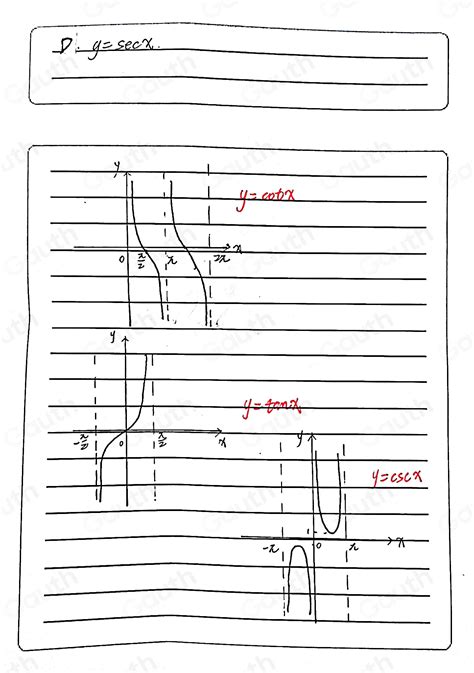 D: y=secx.
y
y=cotx
0 π/2 π 2π x
y
y=tanx
-π/2 0 π/2 x
y
y=cscx
-π 0 π x